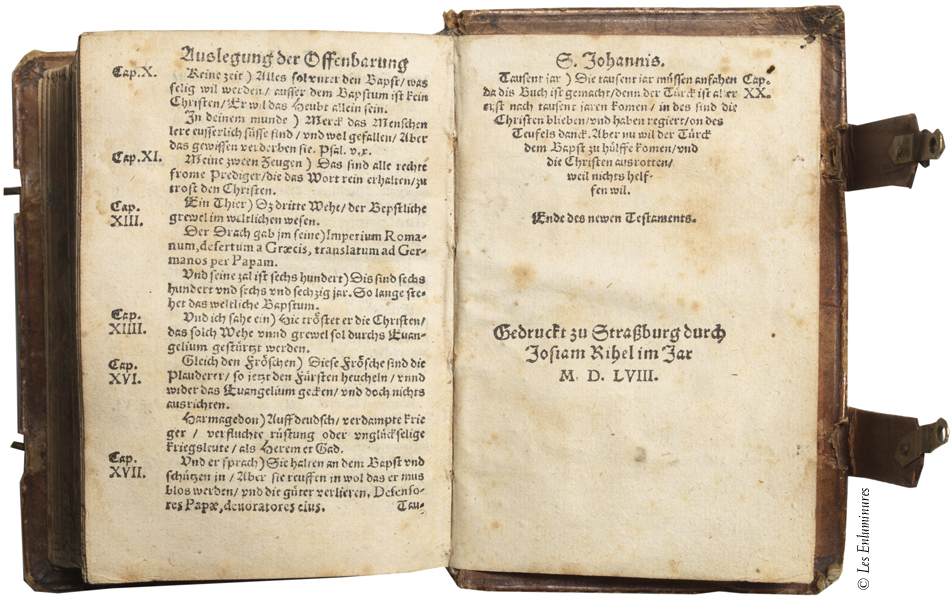 Auslegung der Offenbarung
Cap. X. Keine zeit) Alles sol vnter den Bapst/was
selig wil werden/ausser dem Bapstum ist kein
Christen/Er wil das Heubt allein sein.
In deinem munde) Merck das Menschen
lere eusserlich süsse sind/vnd wol gefallen/Aber
das gewissen verderben sie. Psal. v.x.
Cap. XI. Meine zween Zeugen) Das sind alle rechte
frome Prediger/die das Wort rein erhalten/zu
trost den Christen.
Cap. XIII. Ein Thier) Dz dritte Wehe/der Bepstliche
grewel im weltlichen wesen.
Der Drach gab jm seine) Imperium Roma-
num, desertum a Græcis, translatum ad Ger-
manos per Papam.
Vnd seine zal ist sechs hundert) Dis sind sechs
hundert vnd sechs vnd sechzig jar. So lange ste-
het das weltliche Bapstum.
Cap. XIIII. Vnd ich sahe ein) Hie tröstet er die Christen/
das solch Wehe vnnd grewel sol durchs Euan-
gelium gestürtzt werden.
Cap. XVI. Gleich den Fröschen) Diese Frösche sind die
Plauderer/so jetzt den Fürsten heucheln/vnnd
wider das Euangelium gecken/vnd doch nichts
ausrichten.
Harmagedon) Auff deudsch/verdampte krie
ger/verfluchte rüstung oder vnglückselige
kriegsleute/als Herem et Gad.
Cap. XVII. Vnd er sprach) Sie halten an dem Bapst vnd
schützen in/Aber sie reuffen in wol das er mus
blos werden/vnd die güter verlieren. Defenso-
res Papæ, deuoratores eius. Tau-
S. Johannis.
Tausent jar) Die tausent jar müssen anfahen Cap. XX.
da dis Buch ist gemacht/denn der Türck ist aller
erst nach tausent jaren komen/in des sind die
Christen blieben/vnd haben regiert/on des
Teufels danck. Aber nu wil der Türck
dem Bapst zu hülffe komen/vnd
die Christen ausrotten/
weil nichts helf-
fen wil.
Ende des newen Testaments.
Gedruckt zu Straßburg durch
Josiam Rihel im Jar
M. D. LVIII.
© Les Enluminures